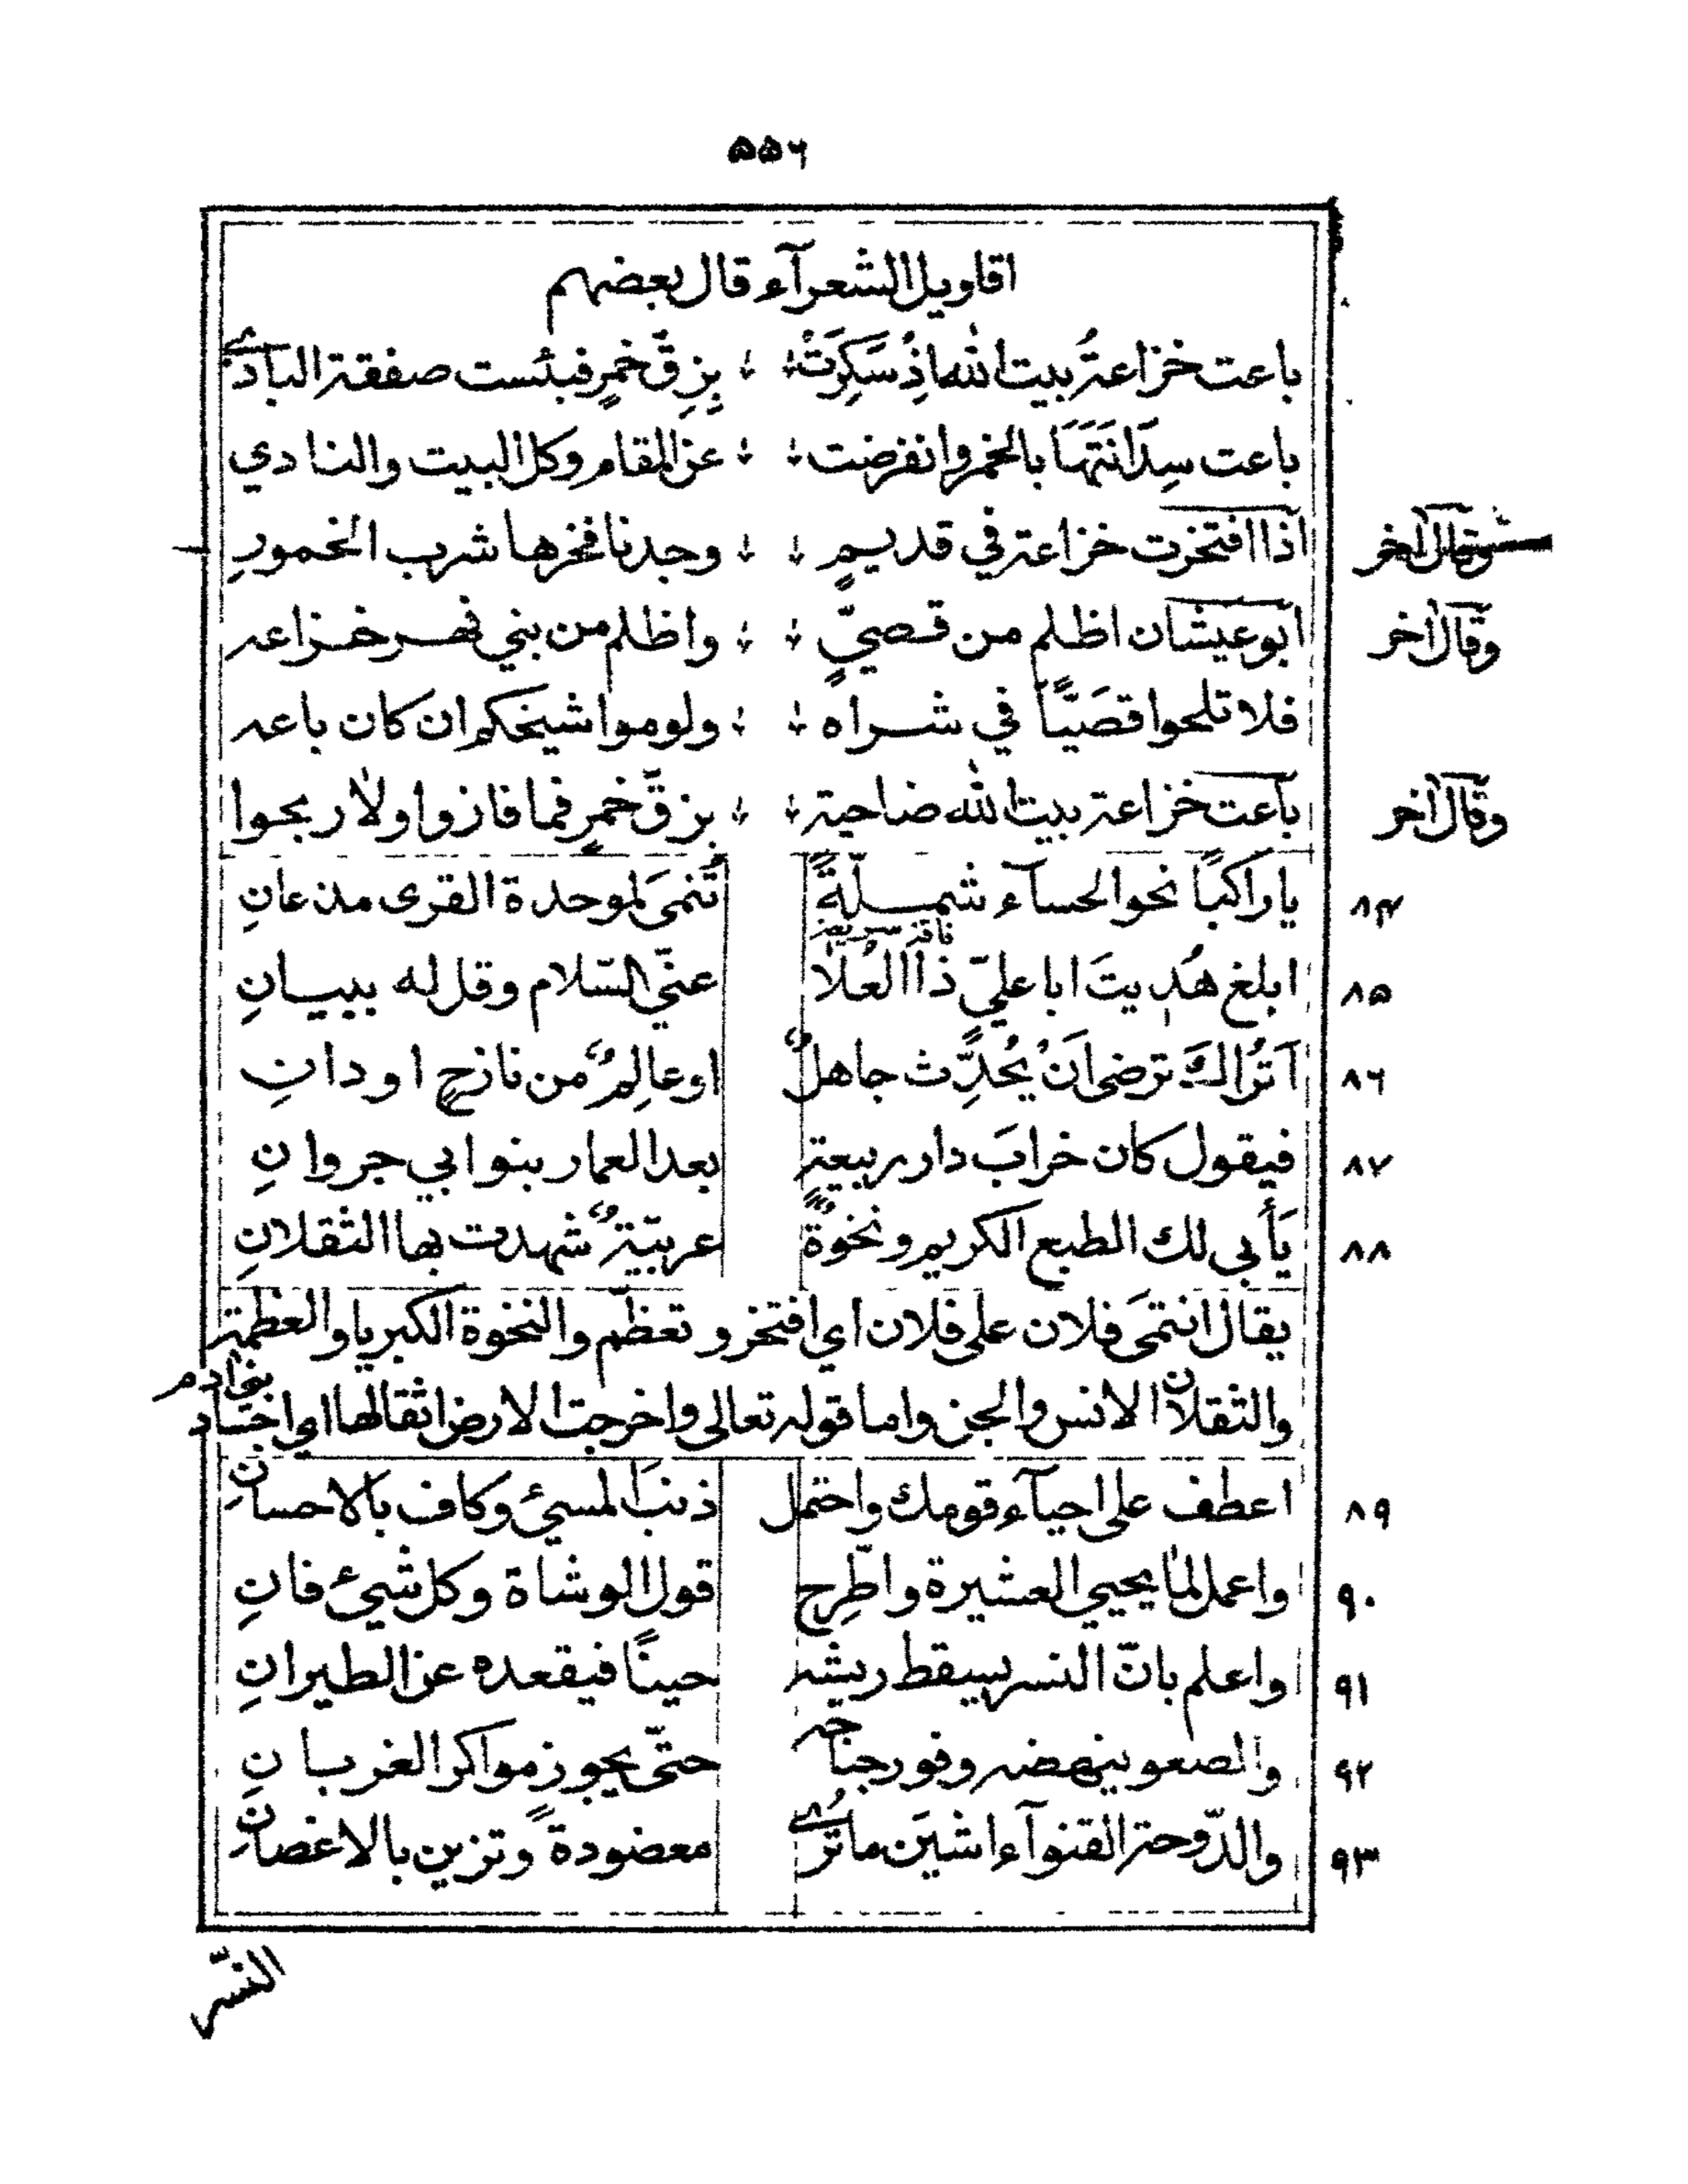 ۵۵۶
اقاويل الشعرآء قال بعضهم
باعت خزاعةُ بيت الله اذ سَكِرَتْ بِزِقّ خمرٍ فبئست صفقة البادي
باعت سِدَانَتَهَا بالخمر وانقرضت عن المقام وكل البيت والنادي
وقال اخر اذا افتخرت خزاعة في قديمٍ وجدنا فخرها شرب الخمورِ
وقال اخر ابوعيشان اظلم من قصيٍّ واظلم من بني فهر خزاعه
فلا تلحوا قصَيًّا في شراه ولوموا شيخكم ان كان باعه
وقال اخر باعت خزاعة بيت الله ضاحية بزقّ خمرٍ فما فازوا ولا ربحوا
۸۴ يا راكبًا نحو الحسآء شمِلّةً تُنمىَ لموحدة القرى مذعانِ
ناقة سريعة
۸۵ ابلغ هُديتَ ابا عليّ ذا العُلا عنّي السّلام وقل له ببيانِ
۸۶ آتُراكَ ترضى اَنْ يُحدِّث جاهلٌ اوعالِمٌ من نازحٍ او دانِ
۸۷ فيقول كان خرابَ دار ربيعةٍ بعد العمار بنوا بي جروانِ
۸۸ يَأبى لك الطبع الكريم ونخوةٌ عربيّةٌ شهدت بها الثقلانِ
يقال انتمىَ فلان على فلان اي افتخر وتعظّم والنخوة الكبريا والعظمة
والثقلان الانس والجن واما قوله تعالى واخرجت الارض اثقالها اي اجساد بني ادم
۸۹ اعطف على احيآء قومك واحتمل ذنبَ المسيئ وكاف بالاحسانِ
۹۰ واعمل لما يحيي العشيرة واطّرِح قول الوشاة وكل شيئ فانِ
۹۱ واعلم بانّ النسر يسقط ريشه حينًا فيقعده عن الطيرانِ
۹۲ والصعو ينهضه وفور جناحه حتّى يجوز مواكر الغربانِ
۹۳ والدّوحة القنوآء اشيَن ما تُرى معضودةً وتزين بالاغصانِ
النسّر